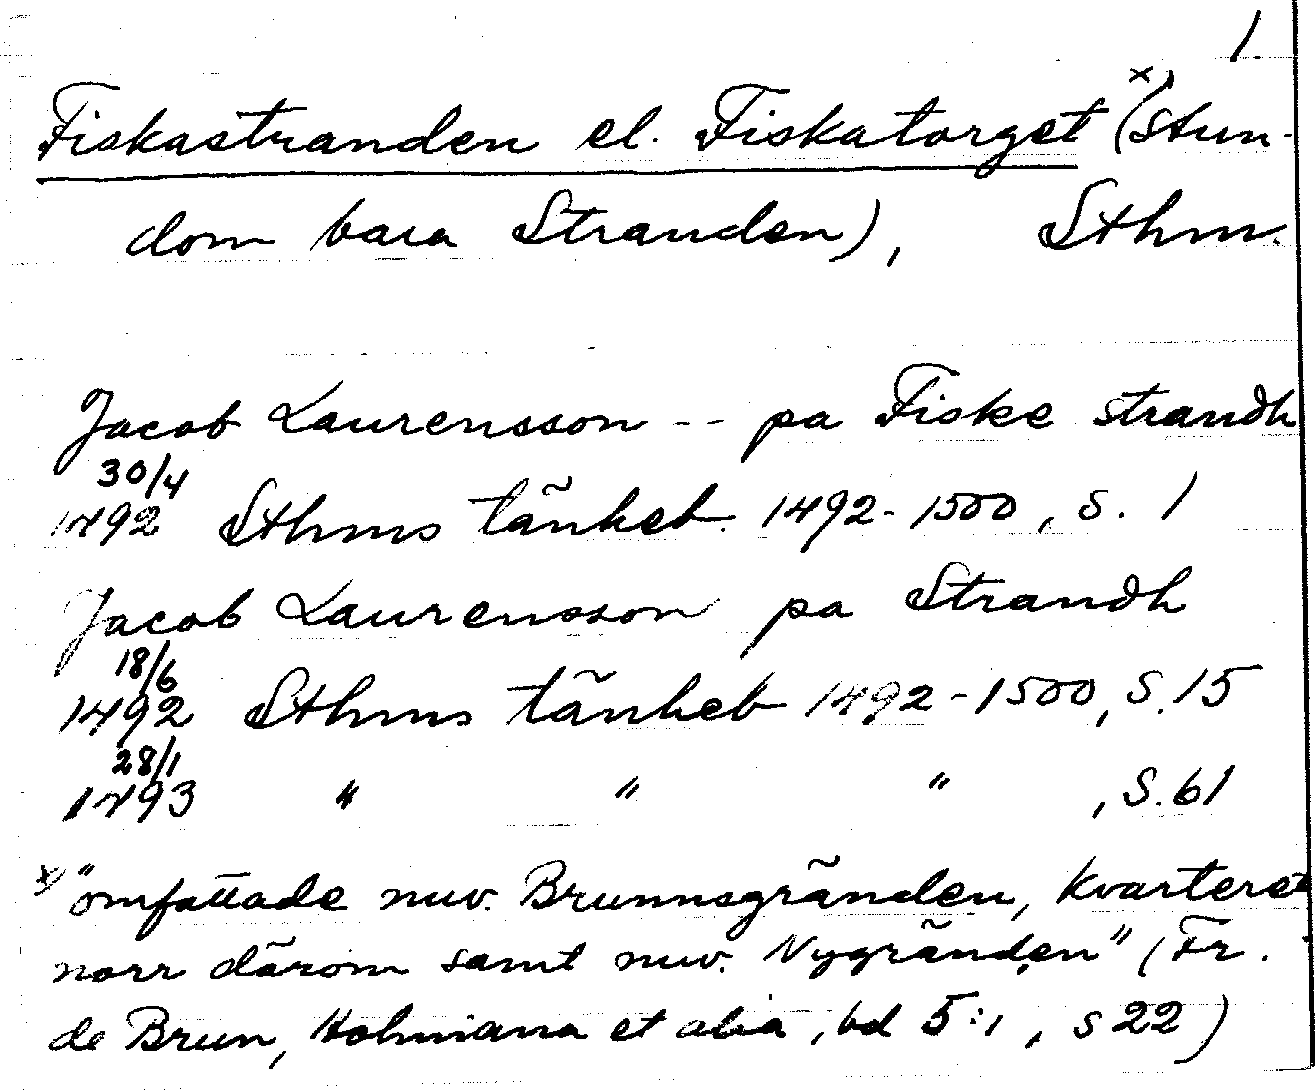 1
Fiskastranden el. Fiskatorget x) (stun-
dom bara Stranden), Sthm.
Jacob Laurensson -- pa Fiske strandh
30/4
1492 Sthms tänkeb. 1492-1500, s. 1
Jacob Laurensson pa Strandh
18/6
1492 Sthms tänkeb 1492-1500, s. 15
28/1
1493 " " " , s. 61
x) "omfattade nuv. Brunnsgränden, kvarteret
norr därom samt nuv. Nygränden" (Fr.
de Brun, Holmiana et alia, bd 5:1, s 22)